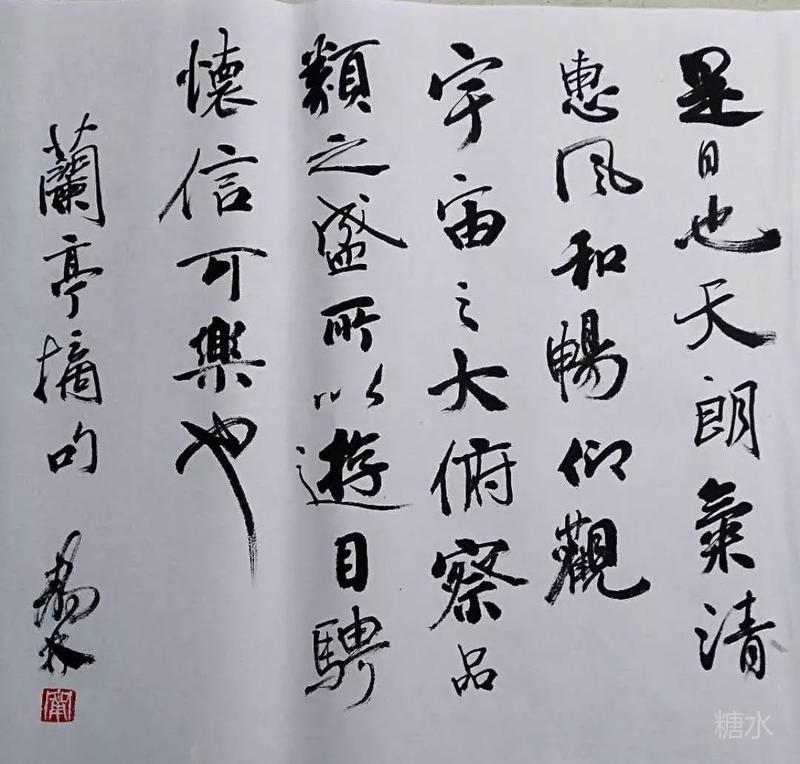 是日也天朗氣清
惠風和暢仰觀
宇宙之大俯察品
類之盛所以遊目騁
懷信可樂也
蘭亭摘句
糖水